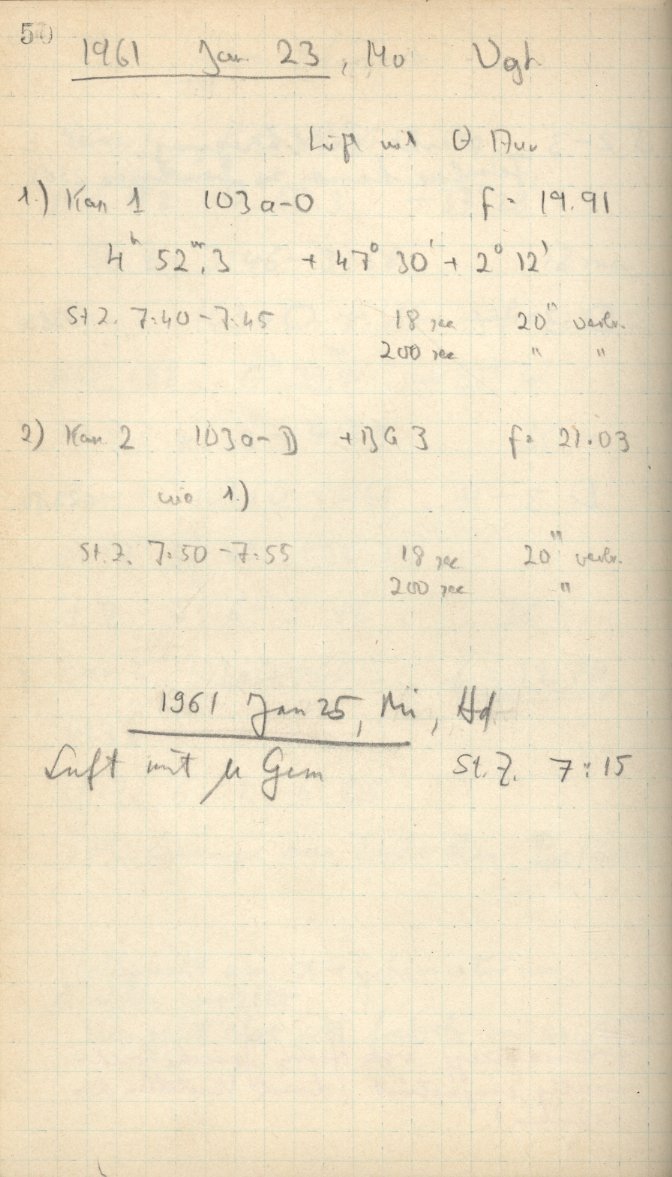 50
1961 Jan 23, Mo Vgt
Luft mit θ Aur
1.) Kam 1 103a-O f = 19.91
4ʰ 52ᵐ,3 + 47° 30' + 2° 12'
St Z. 7:40 - 7:45 18 sec 20" verbr.
200 sec " "
2) Kam 2 103a-D + BG 3 f = 21.03
wie 1.)
St. Z. 7:50 - 7:55 18 sec 20" verbr.
200 sec "
1961 Jan 25, Mi, Hd
Luft mit μ Gem St. Z. 7:15